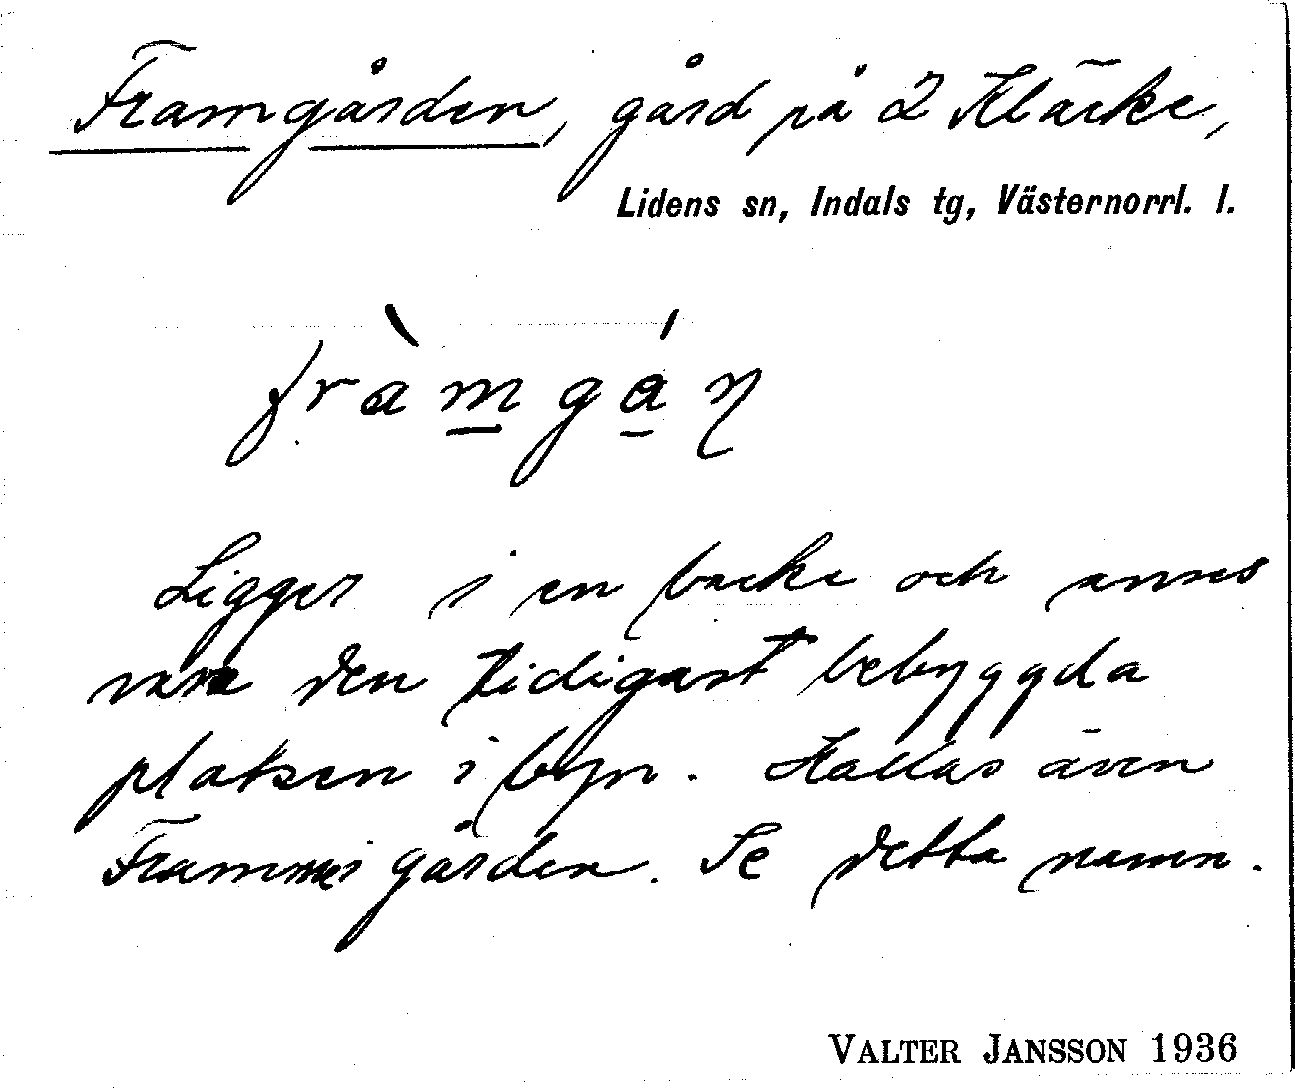 Framgården, gård på 2 Kläcke,
Lidens sn, Indals tg, Västernorrl. l.
fràmgáɳ
Ligger i en backe och anses
vara den tidigast bebyggda
platsen i byn. Kallas även
Frammigården. Se detta namn.
VALTER JANSSON 1936